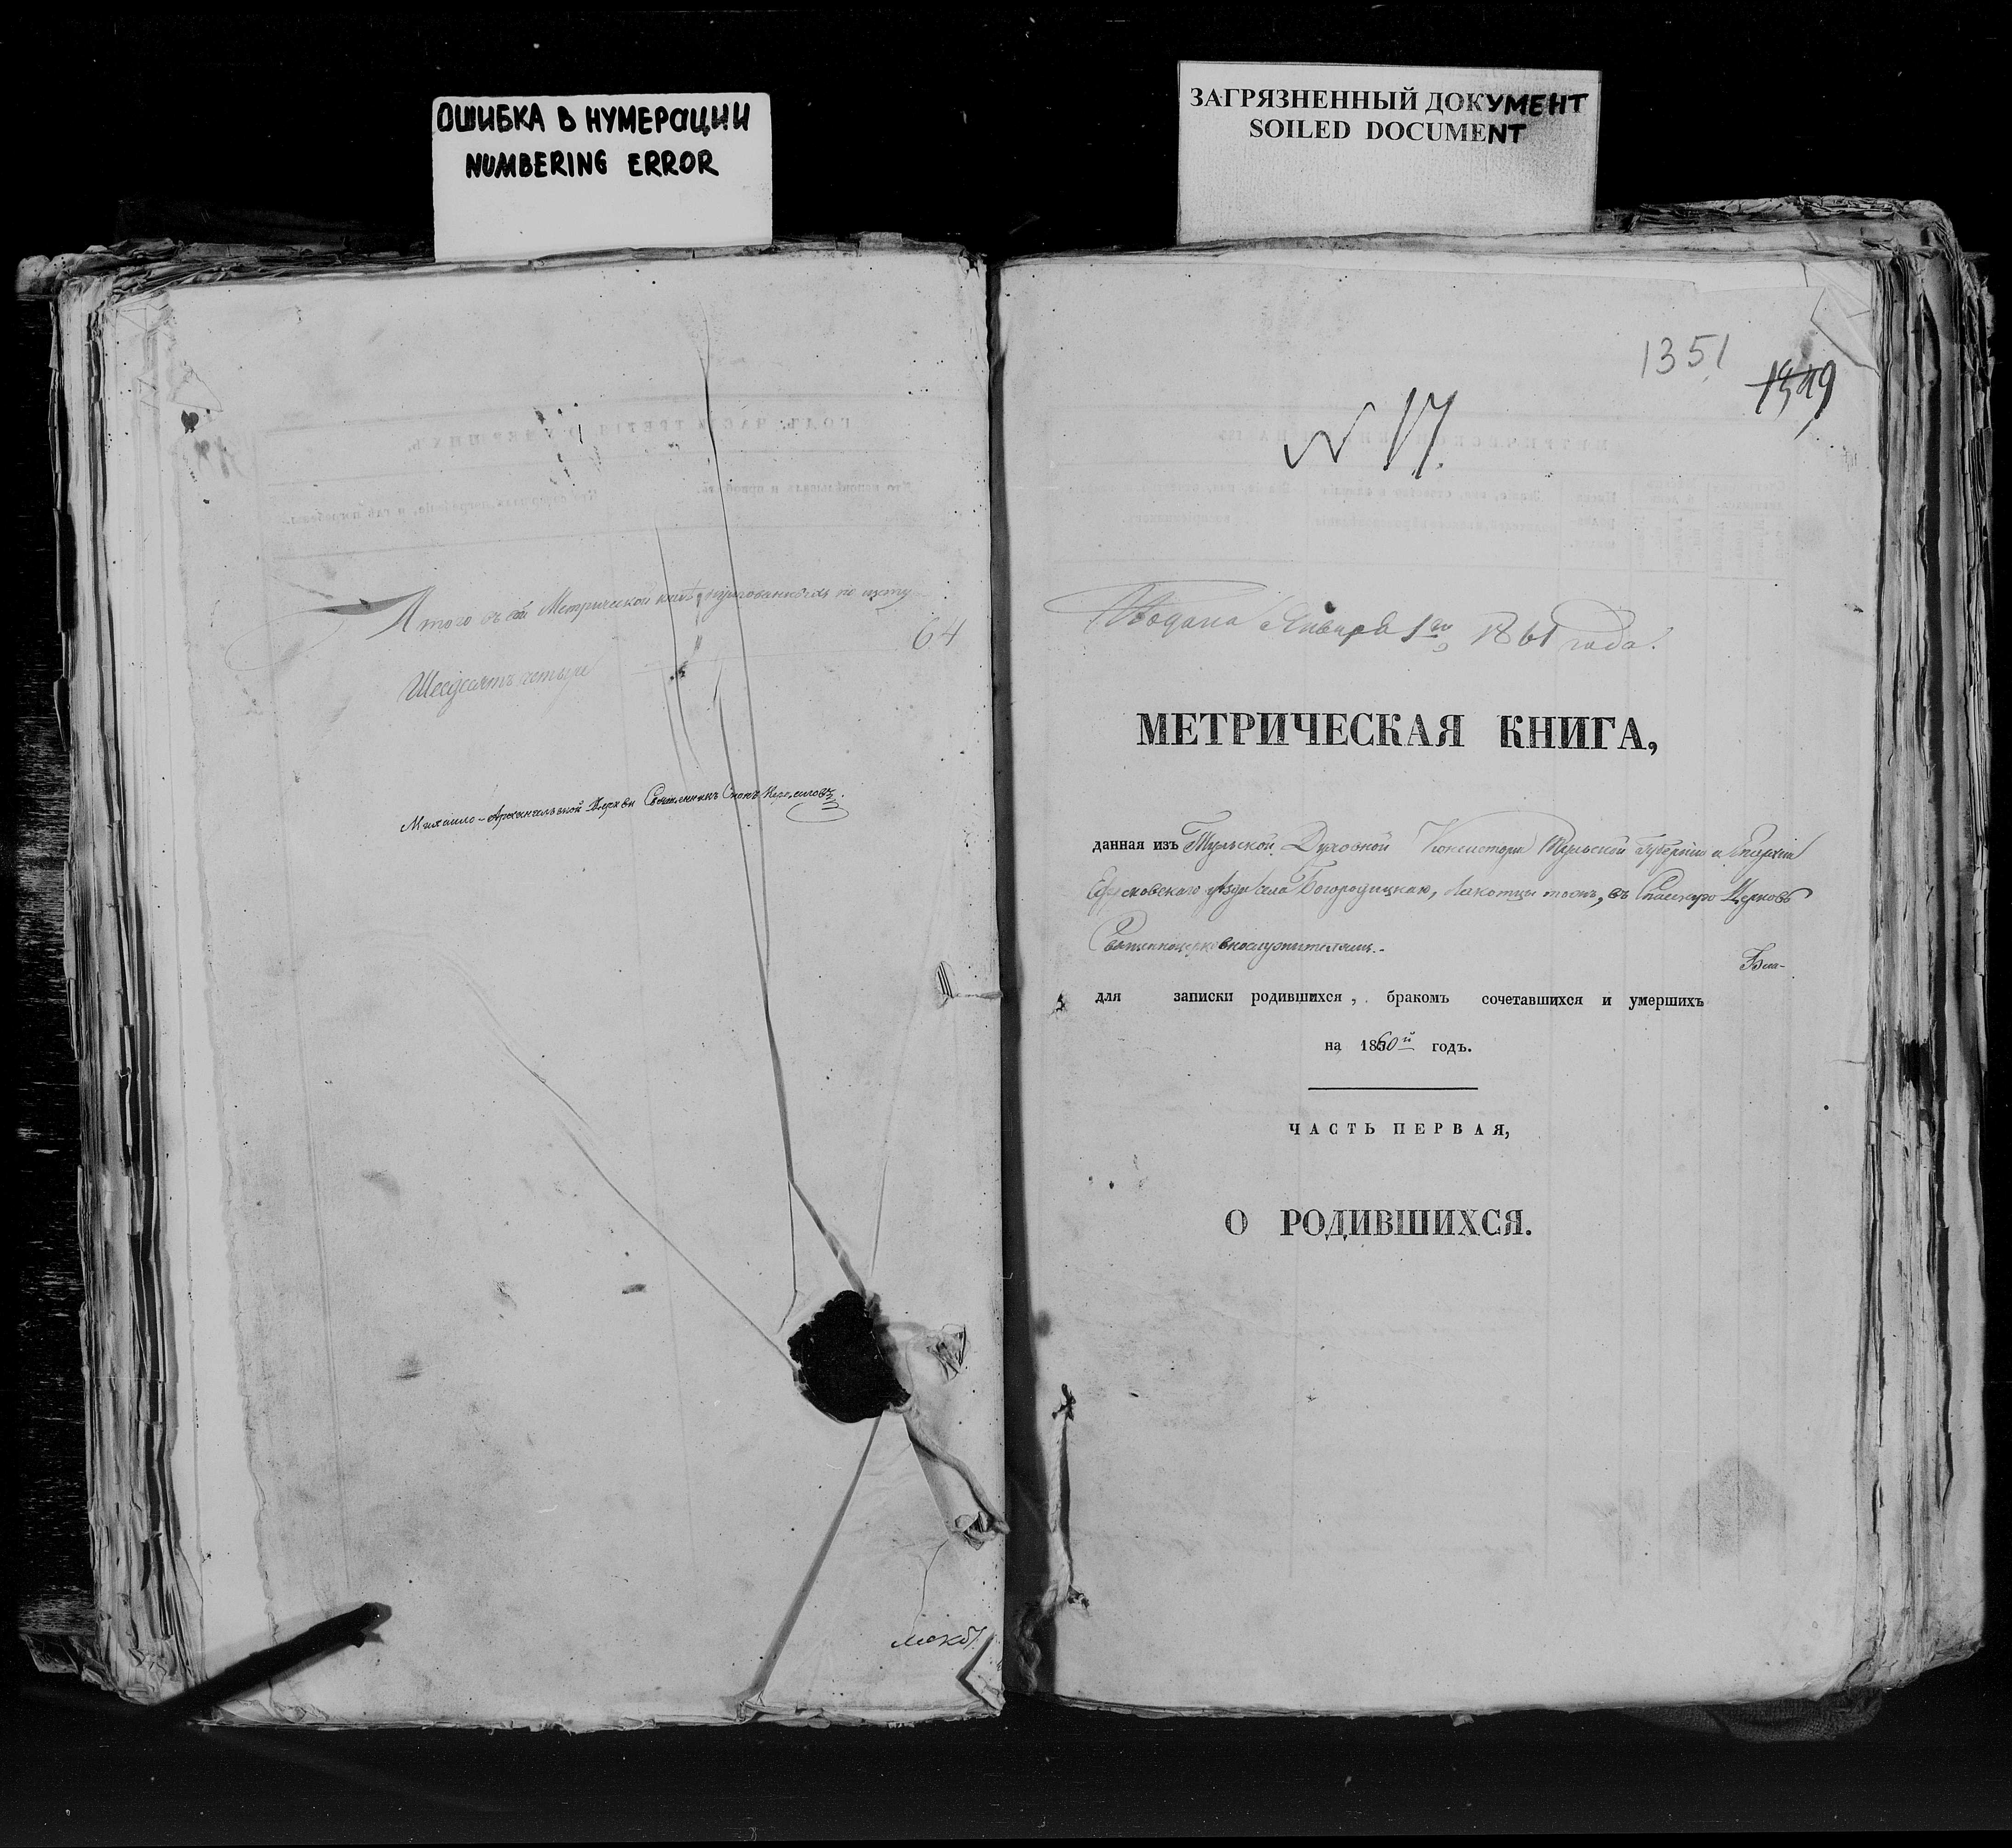 ОШИБКА В НУМЕРАЦИИ
NUMBERING ERROR
ЗАГРЯЗНЕННЫЙ ДОКУМЕНТ
SOILED DOCUMENT
Итого въ сей Метрической книгѣ по листу
64
Шесдесятъ четыре
Михаило-Архангельской Церкви Священникъ
1351
1349
N 17.
Подана Января 1го 1861 года.
МЕТРИЧЕСКАЯ КНИГА,
данная изъ Тульской Духовной Консисторіи Тульской Губерніи и Епархіи
Ефремовскаго уѣзда села Богородицкаго, тожъ, въ Спасскую Церковь
Священноцерковнослужителямъ.
для записки родившихся, бракомъ сочетавшихся и умершихъ
на 1860й годъ.
ЧАСТЬ ПЕРВАЯ,
О РОДИВШИХСЯ.